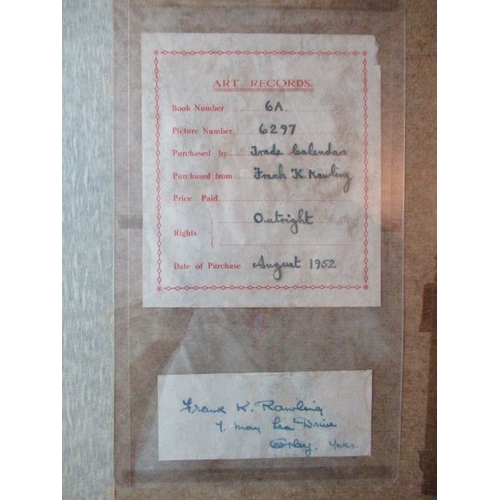 ART RECORDS.
Book Number 6A.
Picture Number 6297
Purchased by Trade Calendars
Purchased from Frank K. Rowling
Price Paid
Outright
Rights
Date of Purchase August 1952
Frank K. Rowling
7. May Lea Drive
Otley, Yorks.